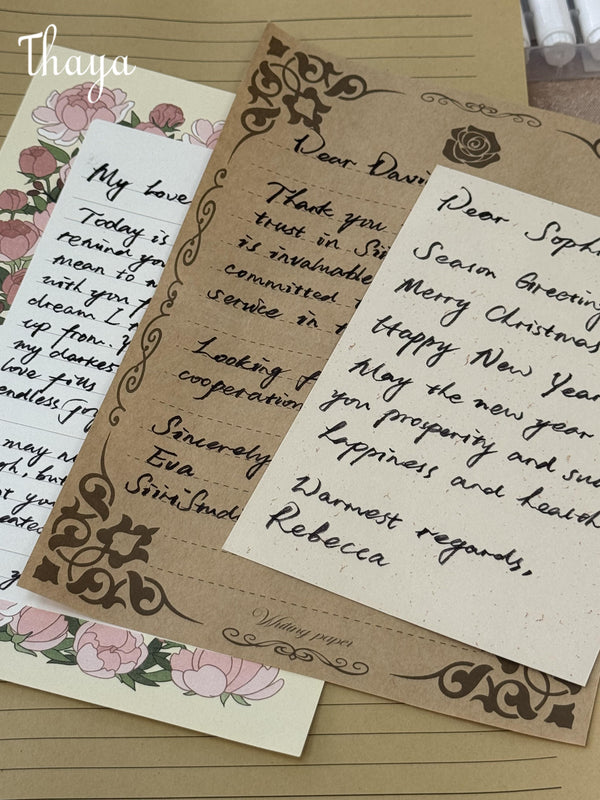 Thaya
My Love
Today is
remind you
mean to m
with you f
dream I
up from.
my darkes
love fills
endless joy
may n
gh, but
t you
eated
y
Dear Davi
Thank you
trust in Siiri
is invaluable
committed t
service in
Looking f
cooperation
Sincerely
Eva
SiiriStudi
Writing paper
Dear Sophi
Season Greeting
Merry Christmas
Happy New Year
May the new year
you prosperity and suc
happiness and health
Warmest regards,
Rebecca